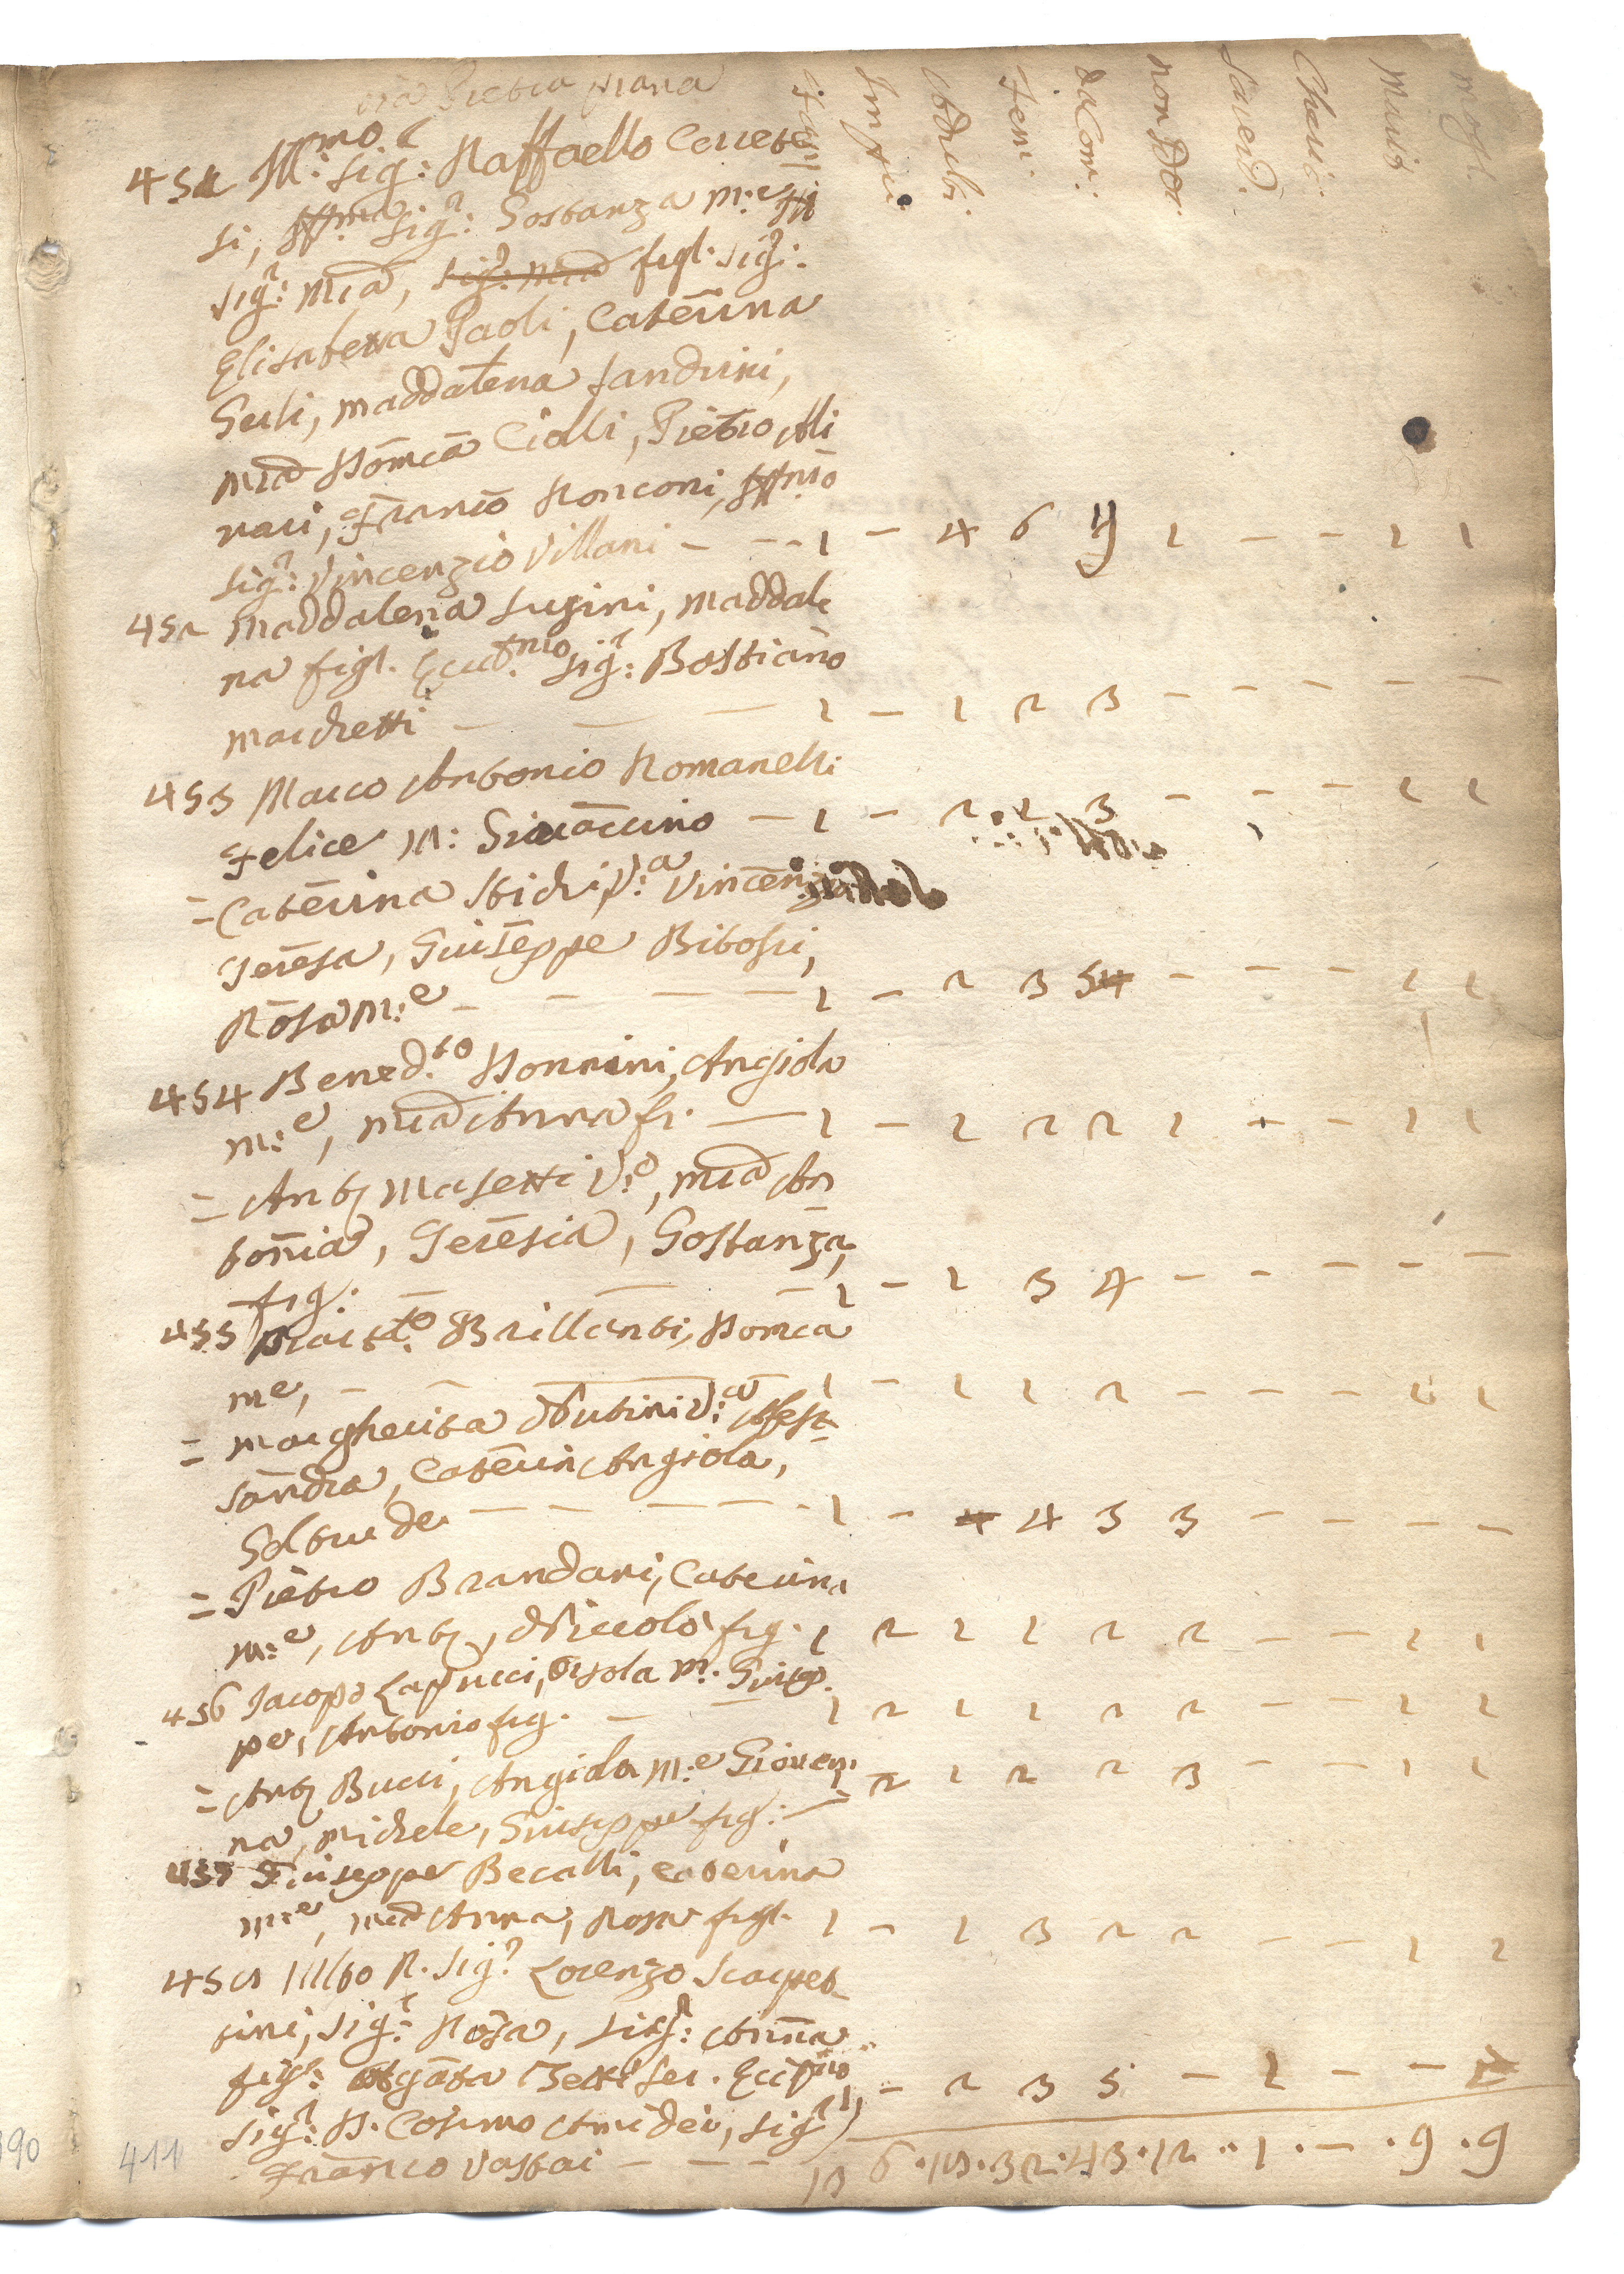 via Pietra piana
fam. Impu. Adulti. Fem. da Com. non Dor. Sacerd. Cheric. Mariti mogl.
451 Ill.mo Sig.r Raffaello Cerrete
si, Ill.ma Sig.ra Gostanza m.e
Sig.ra Mia, figl. Sig.ra
Elisabetta Paoli, Caterina
Geri, Maddalena Landrini,
Mia Domca Cialli, Pietro Ali
nari, Franco Ronconi,
Sig.r Vincenzio Villani - - - 1 - 4 6 9 1 - - 1 1
452 Maddalena Lugini, Maddale
na figl. Sig.r Bastiano
Marchetti - - - 1 - 1 2 3 - - - - -
453 Marco Antonio Romanelli
Felice m: Giovaccino - 1 - 2 2 3 - - - 1 1
= Caterina Stichi V.a Vincenzo
Teresa, Giuseppe Bitossi,
Rosa m.e - - - - 1 - 2 3 5 - - - 1 1
454 Bened.to Donnini, Angiola
m.e, Mia Anna fi. - 1 - 1 2 2 1 - - 1 1
= Anto Masetti V.o, Mia An
tonia, Teresia, Gostanza,
fig: - - - 1 - 1 3 4 - - - - -
455 Brillanti, Domca
me, - - - 1 - 1 1 2 - - - 1 1
= Margherita Nutini V.a Aless
sandra, Caterin Angiola,
Geltrude - - - - 1 - 4 3 3 - - - -
= Pietro Brandani, Caterina
m.e, Anto, Niccolo fig. 1 2 1 1 2 2 - - 1 1
456 Jacopo Lapucci, Orsola m. Giusep
pe, Antonio fig. - - 1 2 1 1 2 2 - - 1 1
= Anto Bucci, Angiola m.e Giovan
na, Michele, Giuseppe fig: - 1 2 1 2 2 3 - - 1 1
457 Giuseppe Becalli, Caterina
m.e, Mia Anna, Rosa figl. 1 - 1 3 2 2 - - 1 1
458 R. Sig.r Lorenzo Scarpet
tini, Sig.ra Rosa, Sig.ra Anna
figl: Agata Betti Ser.
Sig.r D. Cosimo Amidei, Sig.r 1 - 2 3 5 - 1 - -
Franco Vastai - - - 13 6 . 19 . 32 . 43 . 12 . 1 . - . 9 . 9
190 411